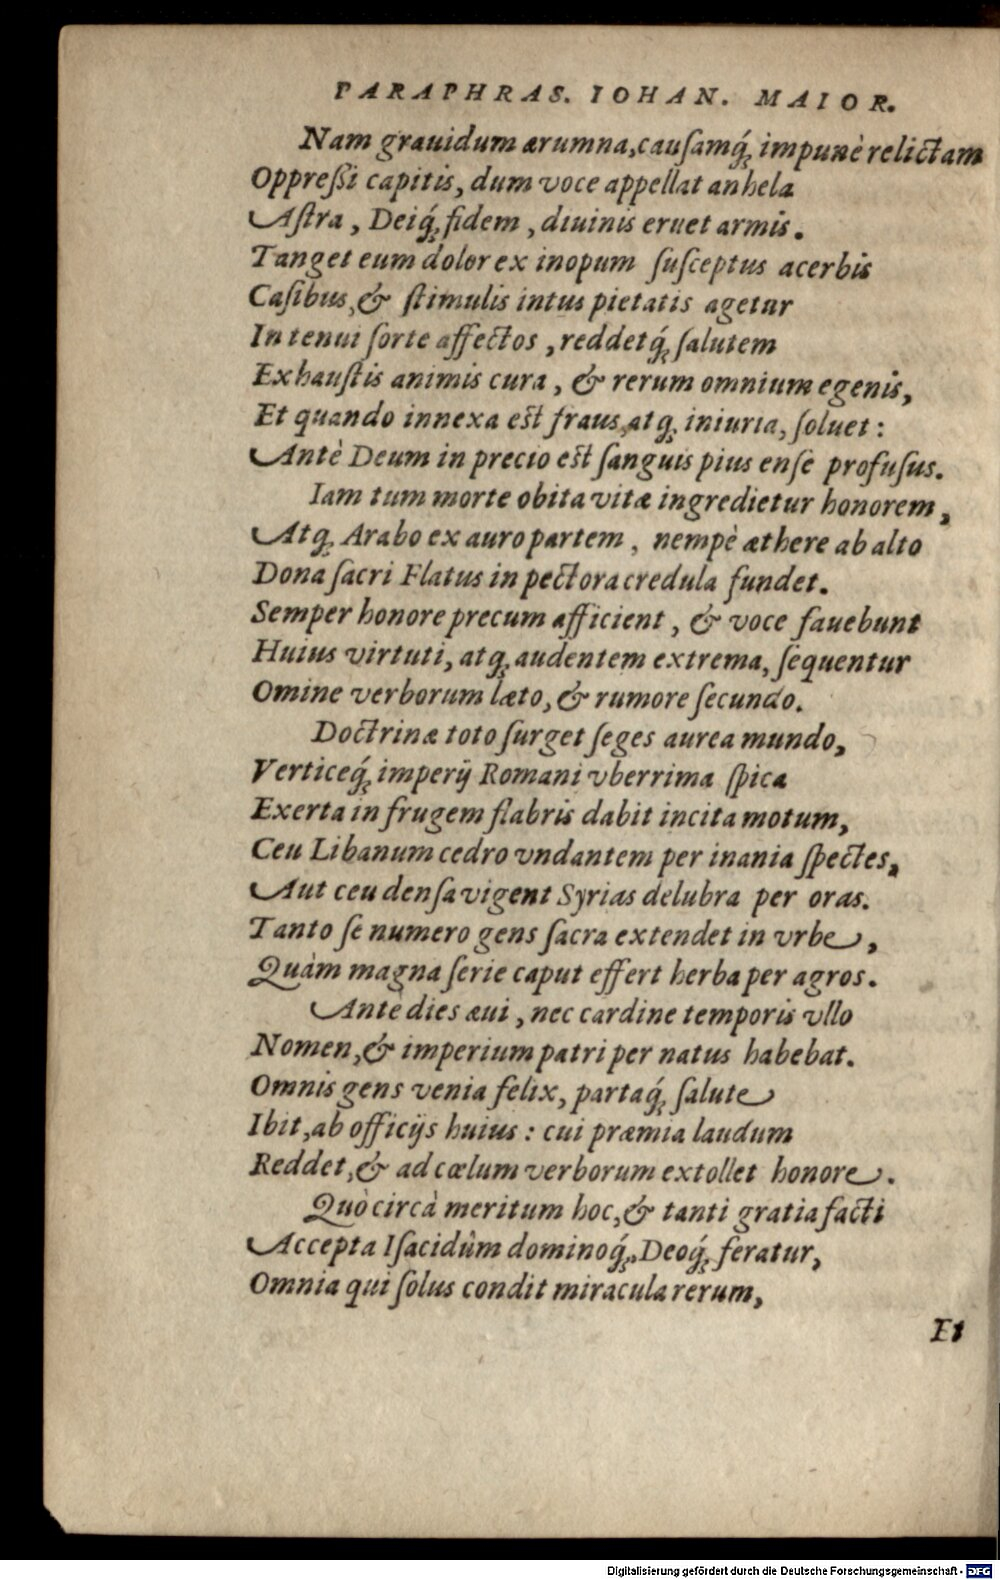 PARAPHRAS. IOHAN. MAIOR.
Nam grauidum ærumna, cauſamq́; impunè relictam
Oppreſsi capitis, dum voce appellat anhela
Aſtra, Deiq́; fidem, diuinis eruet armis.
Tanget eum dolor ex inopum ſuſceptus acerbis
Caſibus, & ſtimulis intus pietatis agetur
In tenui ſorte affectos, reddetq́; ſalutem
Exhauſtis animis cura, & rerum omnium egenis,
Et quando innexa eſt fraus, atq; iniuria, ſoluet:
Antè Deum in precio eſt ſanguis pius enſe profuſus.
Iam tum morte obita vitæ ingredietur honorem,
Atq; Arabo ex auro partem, nempè æthere ab alto
Dona ſacri Flatus in pectora credula fundet.
Semper honore precum afficient, & voce fauebunt
Huius virtuti, atq; audentem extrema, ſequentur
Omine verborum læto, & rumore ſecundo.
Doctrinæ toto ſurget ſeges aurea mundo,
Verticeq́; imperij Romani vberrima ſpica
Exerta in frugem flabris dabit incita motum,
Ceu Libanum cedro vndantem per inania ſpectes,
Aut ceu denſa vigent Syrias delubra per oras.
Tanto ſe numero gens ſacra extendet in vrbe,
Quàm magna ſerie caput effert herba per agros.
Antè dies æui, nec cardine temporis vllo
Nomen, & imperium patri per natus habebat.
Omnis gens venia felix, partaq́; ſalute
Ibit, ab officijs huius: cui præmia laudum
Reddet, & ad cœlum verborum extollet honore.
Quò circà meritum hoc, & tanti gratia facti
Accepta Iſacidûm dominoq́;, Deoq́; feratur,
Omnia qui ſolus condit miracula rerum,
Et
Digitalisierung gefördert durch die Deutsche Forschungsgemeinschaft - DFG